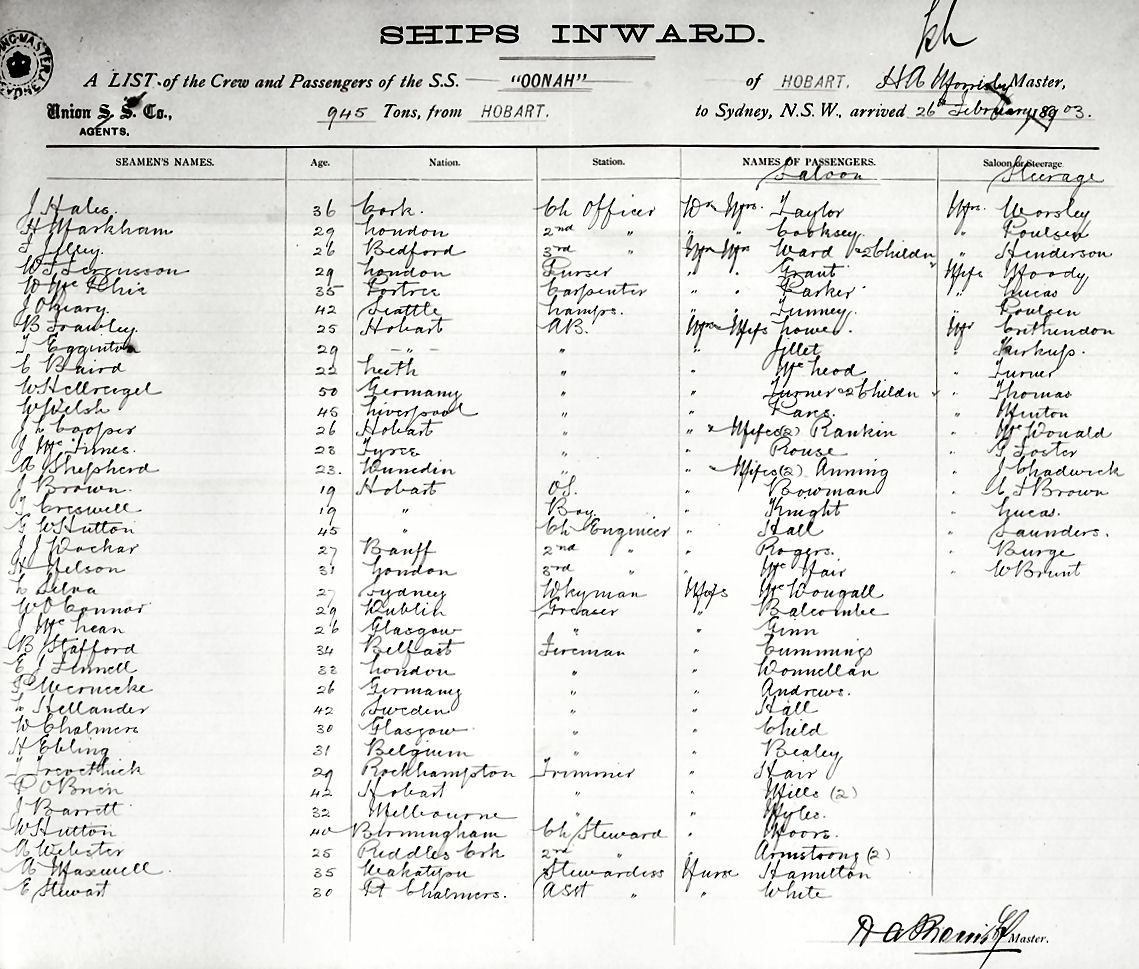 SHIPS INWARD.
A LIST of the Crew and Passengers of the S.S. "OONAH" of HOBART. Master,
Union S. S. Co., 945 Tons, from HOBART. to Sydney, N.S.W., arrived 26th February 1903.
AGENTS.
SEAMEN'S NAMES. Age. Nation. Station. NAMES OF PASSENGERS. Saloon or Steerage
Saloon Steerage
J Hales. 36 Cork. Ch Officer Taylor Worsley
H Markham 29 London 2nd " Cooksey. " Poulsen
26 Bedford 3rd " Ward & 2 Childn " Henderson
29 London Purser " " Grant Moody
35 Portree Carpenter " " Parker " Lucas
42 Seattle Lamps. " " Poulsen
B Frawley. 25 Hobart AB. Lowe.
T Egginton 29 " " " Jillet "
C Baird 22 Leith " " McLeod " Turner
50 Germany " " Turner & 2 Childn " Thomas
W Welsh 45 Liverpool " " "
J L Cooper 26 Hobart " " (2) Rankin " McDonald
J McInnes. 28 " " Rouse " Foster
A Shepherd 23. Dunedin " " (2) Anning " J Chadwick
J Brown. 19 Hobart OS. " Bowman " Brown
Creswell 19 " Boy " Knight " Lucas.
G W Hutton 45 " Ch Engineer " Hall " Saunders.
J J 27 Banff 2nd " " Rogers. " Burge
H Nelson 31 London 3rd " " McNair " W Brunt
L Silva 27 Sydney Dkyman McDougall
W O'Connor 29 Dublin Greaser " Balcombe
J McLean 26 Glasgow " " Ginn
B Stafford 34 Belfast Fireman " Cummings
E J Fennell 33 London " " Donnellan
P Wernecke 26 Germany " " Andrews.
L Hellander 42 Sweden " " Hall
W Chalmers 30 Glasgow " " Child
H Ebling 31 Belgium " " Bealey
Trevethick 29 Rockhampton Trimmer " Hair
P O'Brien 42 Hobart " " Mills (2)
J Barrett 32 Melbourne " " Myles.
W Hutton 40 Birmingham Ch Steward "
A Webster 25 Riddles Crk 2nd " " Armstrong (2)
A Maxwell 35 Wakatipu Stewardess Nurse Hamilton
E Stewart 30 Pt Chalmers. Asst " " White
Master.